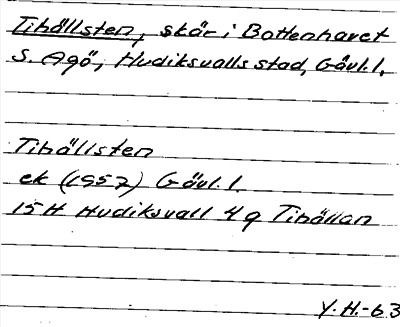 Tihällsten, skär i Bottenhavet
S. Agö, Hudiksvalls stad, Gävl. l.
Tihällsten
ek (1957) Gävl. l.
15H Hudiksvall 4g Tihällan
Y. H.-63